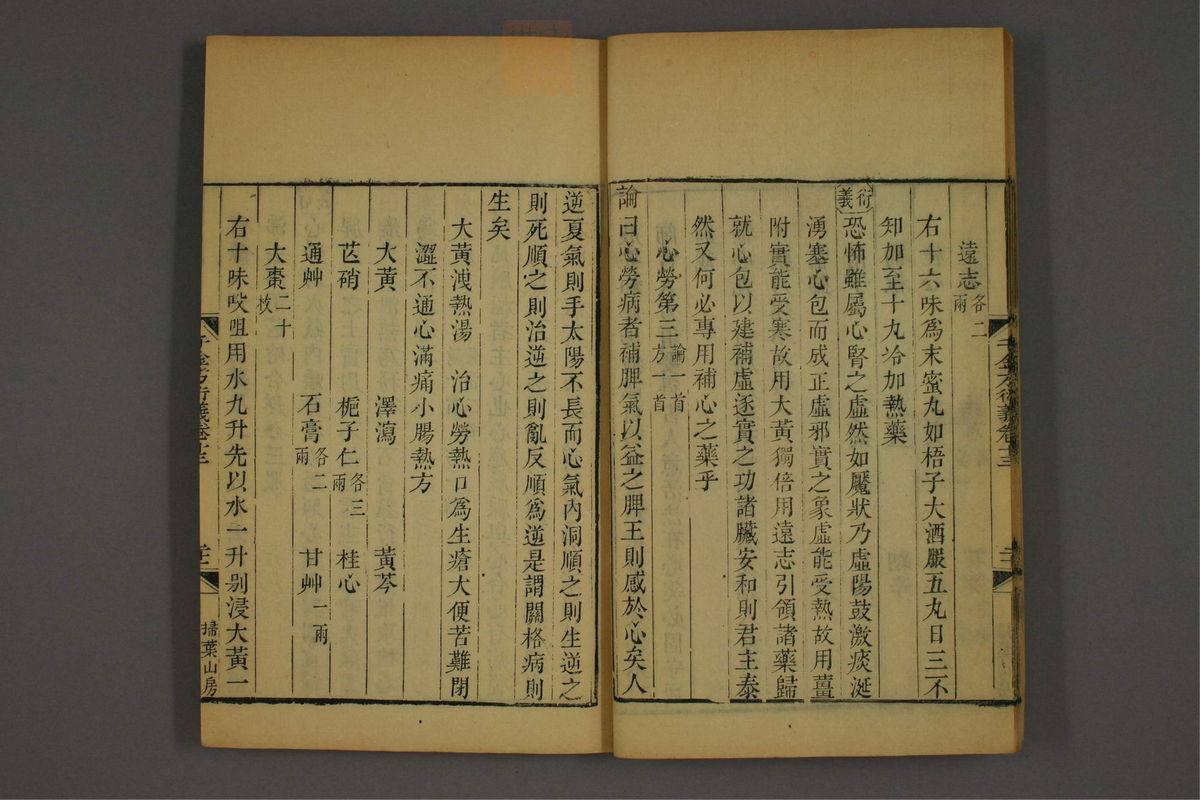 遠志各二兩
右十六味爲末蜜丸如梧子大酒嚴五丸日三不
知加至十九冾加熱藥
衍義恐怖雖屬心腎之虛然如魘狀乃虛陽鼓激痰涎
湧塞心包而成正虛邪實之象虛能受熱故用薑
附實能受寒故用大黃獨倍用遠志引領諸藥歸
就心包以建補虛逐實之功諸臟安和則君主泰
然又何必專用補心之藥乎
心勞第三論一首方一首
論曰心勞病者補脾氣以益之脾王則感於心矣人
千金方衍義卷十三
逆夏氣則手太陽不長而心氣內洞順之則生逆之
則死順之則治逆之則亂反順爲逆是謂關格病則
生矣
大黃洩熱湯 治心勞熱口爲生瘡大便苦難閉
澀不通心滿痛小腸熱方
大黃 澤瀉 黃芩
芒硝 梔子仁各三兩 桂心
通艸 石膏各二兩 甘艸一兩
大棗二十枚
右十味㕮咀用水九升先以水一升别浸大黃一
千金方衍義卷十三
掃葉山房